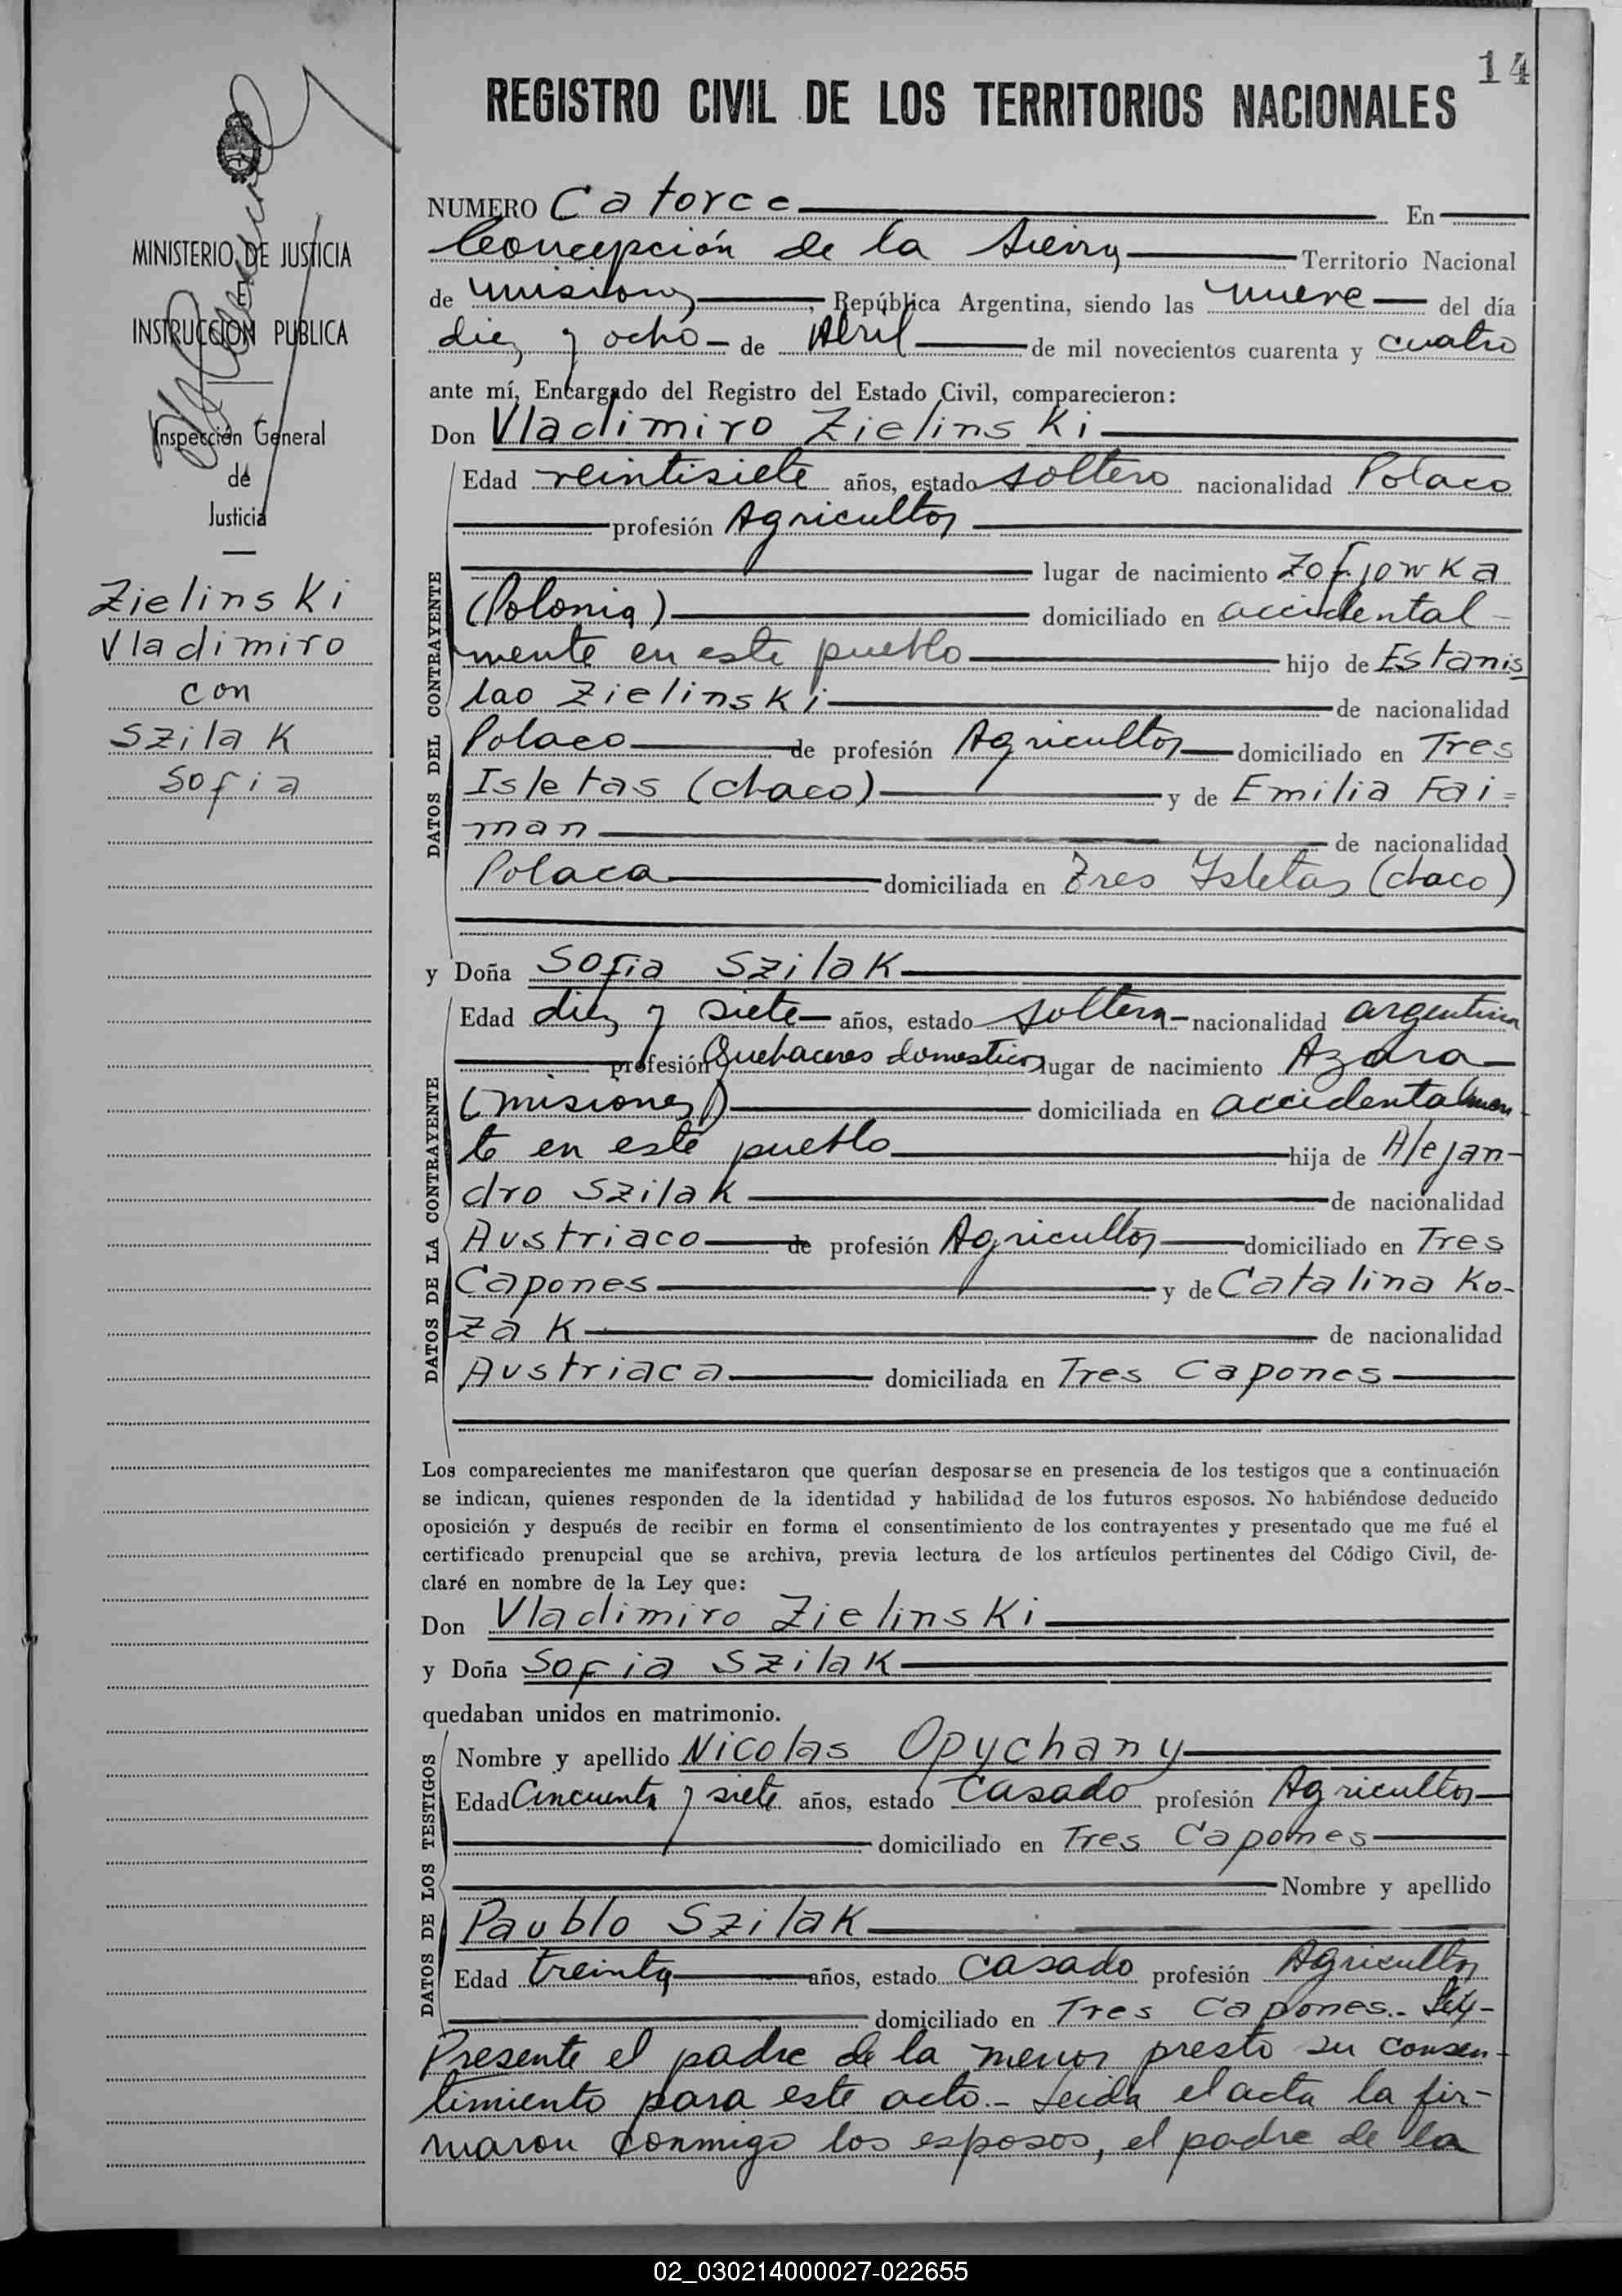 14
REGISTRO CIVIL DE LOS TERRITORIOS NACIONALES
MINISTERIO DE JUSTICIA
E
INSTRUCCION PUBLICA
Inspección General
de
Justicia
Zielinski
Vladimiro
con
Szilak
Sofia
NUMERO Catorce En
Concepción de la Sierra Territorio Nacional
de Misiones, República Argentina, siendo las nueve del día
diez y ocho de Abril de mil novecientos cuarenta y cuatro
ante mí, Encargado del Registro del Estado Civil, comparecieron:
Don Vladimiro Zielinski
DATOS DEL CONTRAYENTE
Edad veintisiete años, estado soltero nacionalidad Polaco
profesión Agricultor
lugar de nacimiento Zofjowka
(Polonia) domiciliado en accidental-
mente en este pueblo hijo de Estanis
lao Zielinski de nacionalidad
Polaco de profesión Agricultor domiciliado en Tres
Isletas (chaco) y de Emilia Fai=
man de nacionalidad
Polaca domiciliada en Tres Isletas (chaco)
y Doña Sofia Szilak
DATOS DE LA CONTRAYENTE
Edad diez y siete años, estado soltera nacionalidad argentina
profesión Quehaceres domesticos lugar de nacimiento Azara
(Misiones) domiciliada en accidentalmen-
te en este pueblo hija de Alejan-
dro Szilak de nacionalidad
Austriaco de profesión Agricultor domiciliado en Tres
Capones y de Catalina Ko-
zak de nacionalidad
Austriaca domiciliada en Tres Capones
Los comparecientes me manifestaron que querían desposarse en presencia de los testigos que a continuación
se indican, quienes responden de la identidad y habilidad de los futuros esposos. No habiéndose deducido
oposición y después de recibir en forma el consentimiento de los contrayentes y presentado que me fué el
certificado prenupcial que se archiva, previa lectura de los artículos pertinentes del Código Civil, de-
claré en nombre de la Ley que:
Don Vladimiro Zielinski
y Doña Sofia Szilak
quedaban unidos en matrimonio.
DATOS DE LOS TESTIGOS
Nombre y apellido Nicolas Opychany
Edad Cincuenta y siete años, estado Casado profesión Agricultor
domiciliado en Tres Capones
Nombre y apellido
Paublo Szilak
Edad treinta años, estado casado profesión Agricultor
domiciliado en Tres Capones.-
Presente el padre de la menor presto su consen-
timiento para este acto.- Leida el acta la fir-
maron conmigo los esposos, el padre de la
02_030214000027-022655